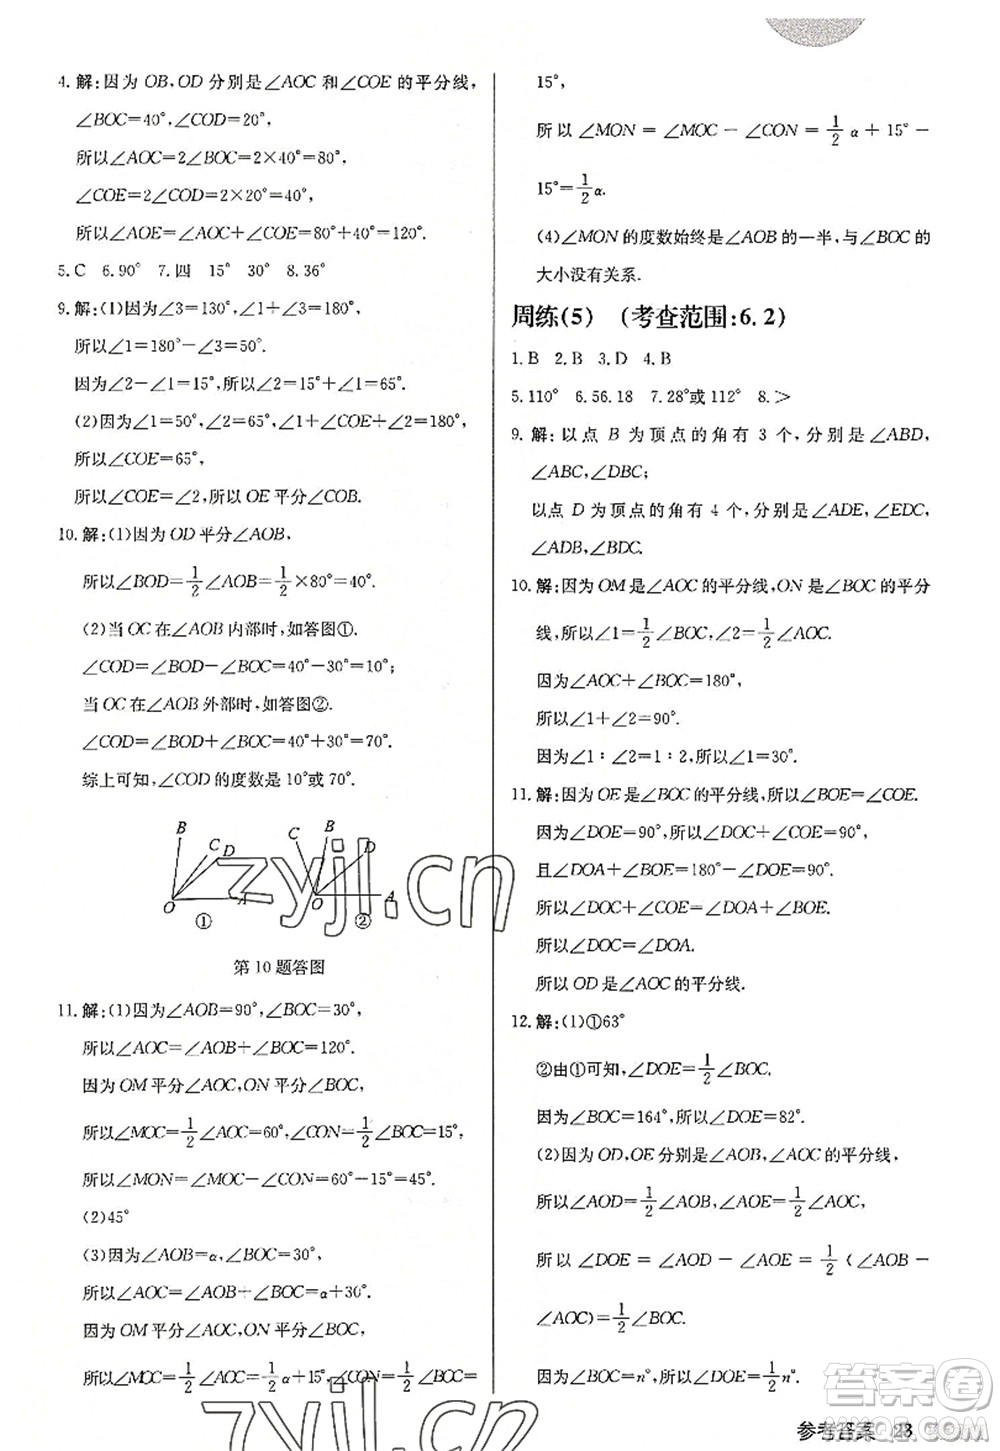 4. 解:因为 OB,OD 分别是∠AOC 和∠COE 的平分线,
∠BOC=40°,∠COD=20°,
所以∠AOC=2∠BOC=2×40°=80°,
∠COE=2∠COD=2×20°=40°,
所以∠AOE=∠AOC+∠COE=80°+40°=120°.
5. C 6. 90° 7. 四 15° 30° 8. 36°
9. 解:(1)因为∠3=130°,∠1+∠3=180°,
所以∠1=180°-∠3=50°.
因为∠2-∠1=15°,所以∠2=65°.
(2)因为∠1=50°,∠2=65°,∠1+∠COE+∠2=180°,
所以∠COE=65°,
所以∠COE=∠2,所以 OE 平分∠COB.
10. 解:(1)因为 OD 平分∠AOB,
所以∠BOD=1/2∠AOB=1/2×80°=40°.
(2)当 OC 在∠AOB 内部时,如答图①.
∠COD=∠BOD-∠BOC=40°-30°=10°;
当 OC 在∠AOB 外部时,如答图②.
∠COD=∠BOD+∠BOC=40°+30°=70°.
综上可知,∠COD 的度数是 10°或 70°.
B C D O A ①
C B D O A ②
第 10 题答图
11. 解:(1)因为∠AOB=90°,∠BOC=30°,
所以∠AOC=∠AOB+∠BOC=120°.
因为 OM 平分∠AOC,ON 平分∠BOC,
所以∠MOC=1/2∠AOC=60°,∠CON=1/2∠BOC=15°,
所以∠MON=∠MOC-∠CON=60°-15°=45°.
(2)45°
(3)因为∠AOB=α,∠BOC=30°,
所以∠AOC=∠AOB+∠BOC=α+30°.
因为 OM 平分∠AOC,ON 平分∠BOC,
所以∠MOC=1/2∠AOC=1/2α+15°,∠CON=1/2∠BOC=
15°,
所以∠MON=∠MOC-∠CON=1/2α+15°-
15°=1/2α.
(4)∠MON 的度数始终是∠AOB 的一半,与∠BOC 的
大小没有关系.
周练(5) (考查范围:6.2)
1. B 2. B 3. D 4. B
5. 110° 6. 56.18 7. 28°或 112° 8. >
9. 解:以点 B 为顶点的角有 3 个,分别是∠ABD,
∠ABC,∠DBC;
以点 D 为顶点的角有 4 个,分别是∠ADE,∠EDC,
∠ADB,∠BDC.
10. 解:因为 OM 是∠AOC 的平分线,ON 是∠BOC 的平分
线,所以∠1=1/2∠BOC,∠2=1/2∠AOC.
因为∠AOC+∠BOC=180°,
所以∠1+∠2=90°.
因为∠1:∠2=1:2,所以∠1=30°.
11. 解:因为 OE 是∠BOC 的平分线,所以∠BOE=∠COE.
因为∠DOE=90°,所以∠DOC+∠COE=90°,
且∠DOA+∠BOE=180°-∠DOE=90°.
所以∠DOC+∠COE=∠DOA+∠BOE.
所以∠DOC=∠DOA.
所以 OD 是∠AOC 的平分线.
12. 解:(1)①63°
②由①可知,∠DOE=1/2∠BOC.
因为∠BOC=164°,所以∠DOE=82°.
(2)因为 OD,OE 分别是∠AOB,∠AOC 的平分线,
所以∠AOD=1/2∠AOB,∠AOE=1/2∠AOC,
所以∠DOE=∠AOD-∠AOE=1/2(∠AOB-
∠AOC)=1/2∠BOC.
因为∠BOC=n°,所以∠DOE=1/2n°.
参考答案 23
zyjl.cn
zyjl.cn
答案圈